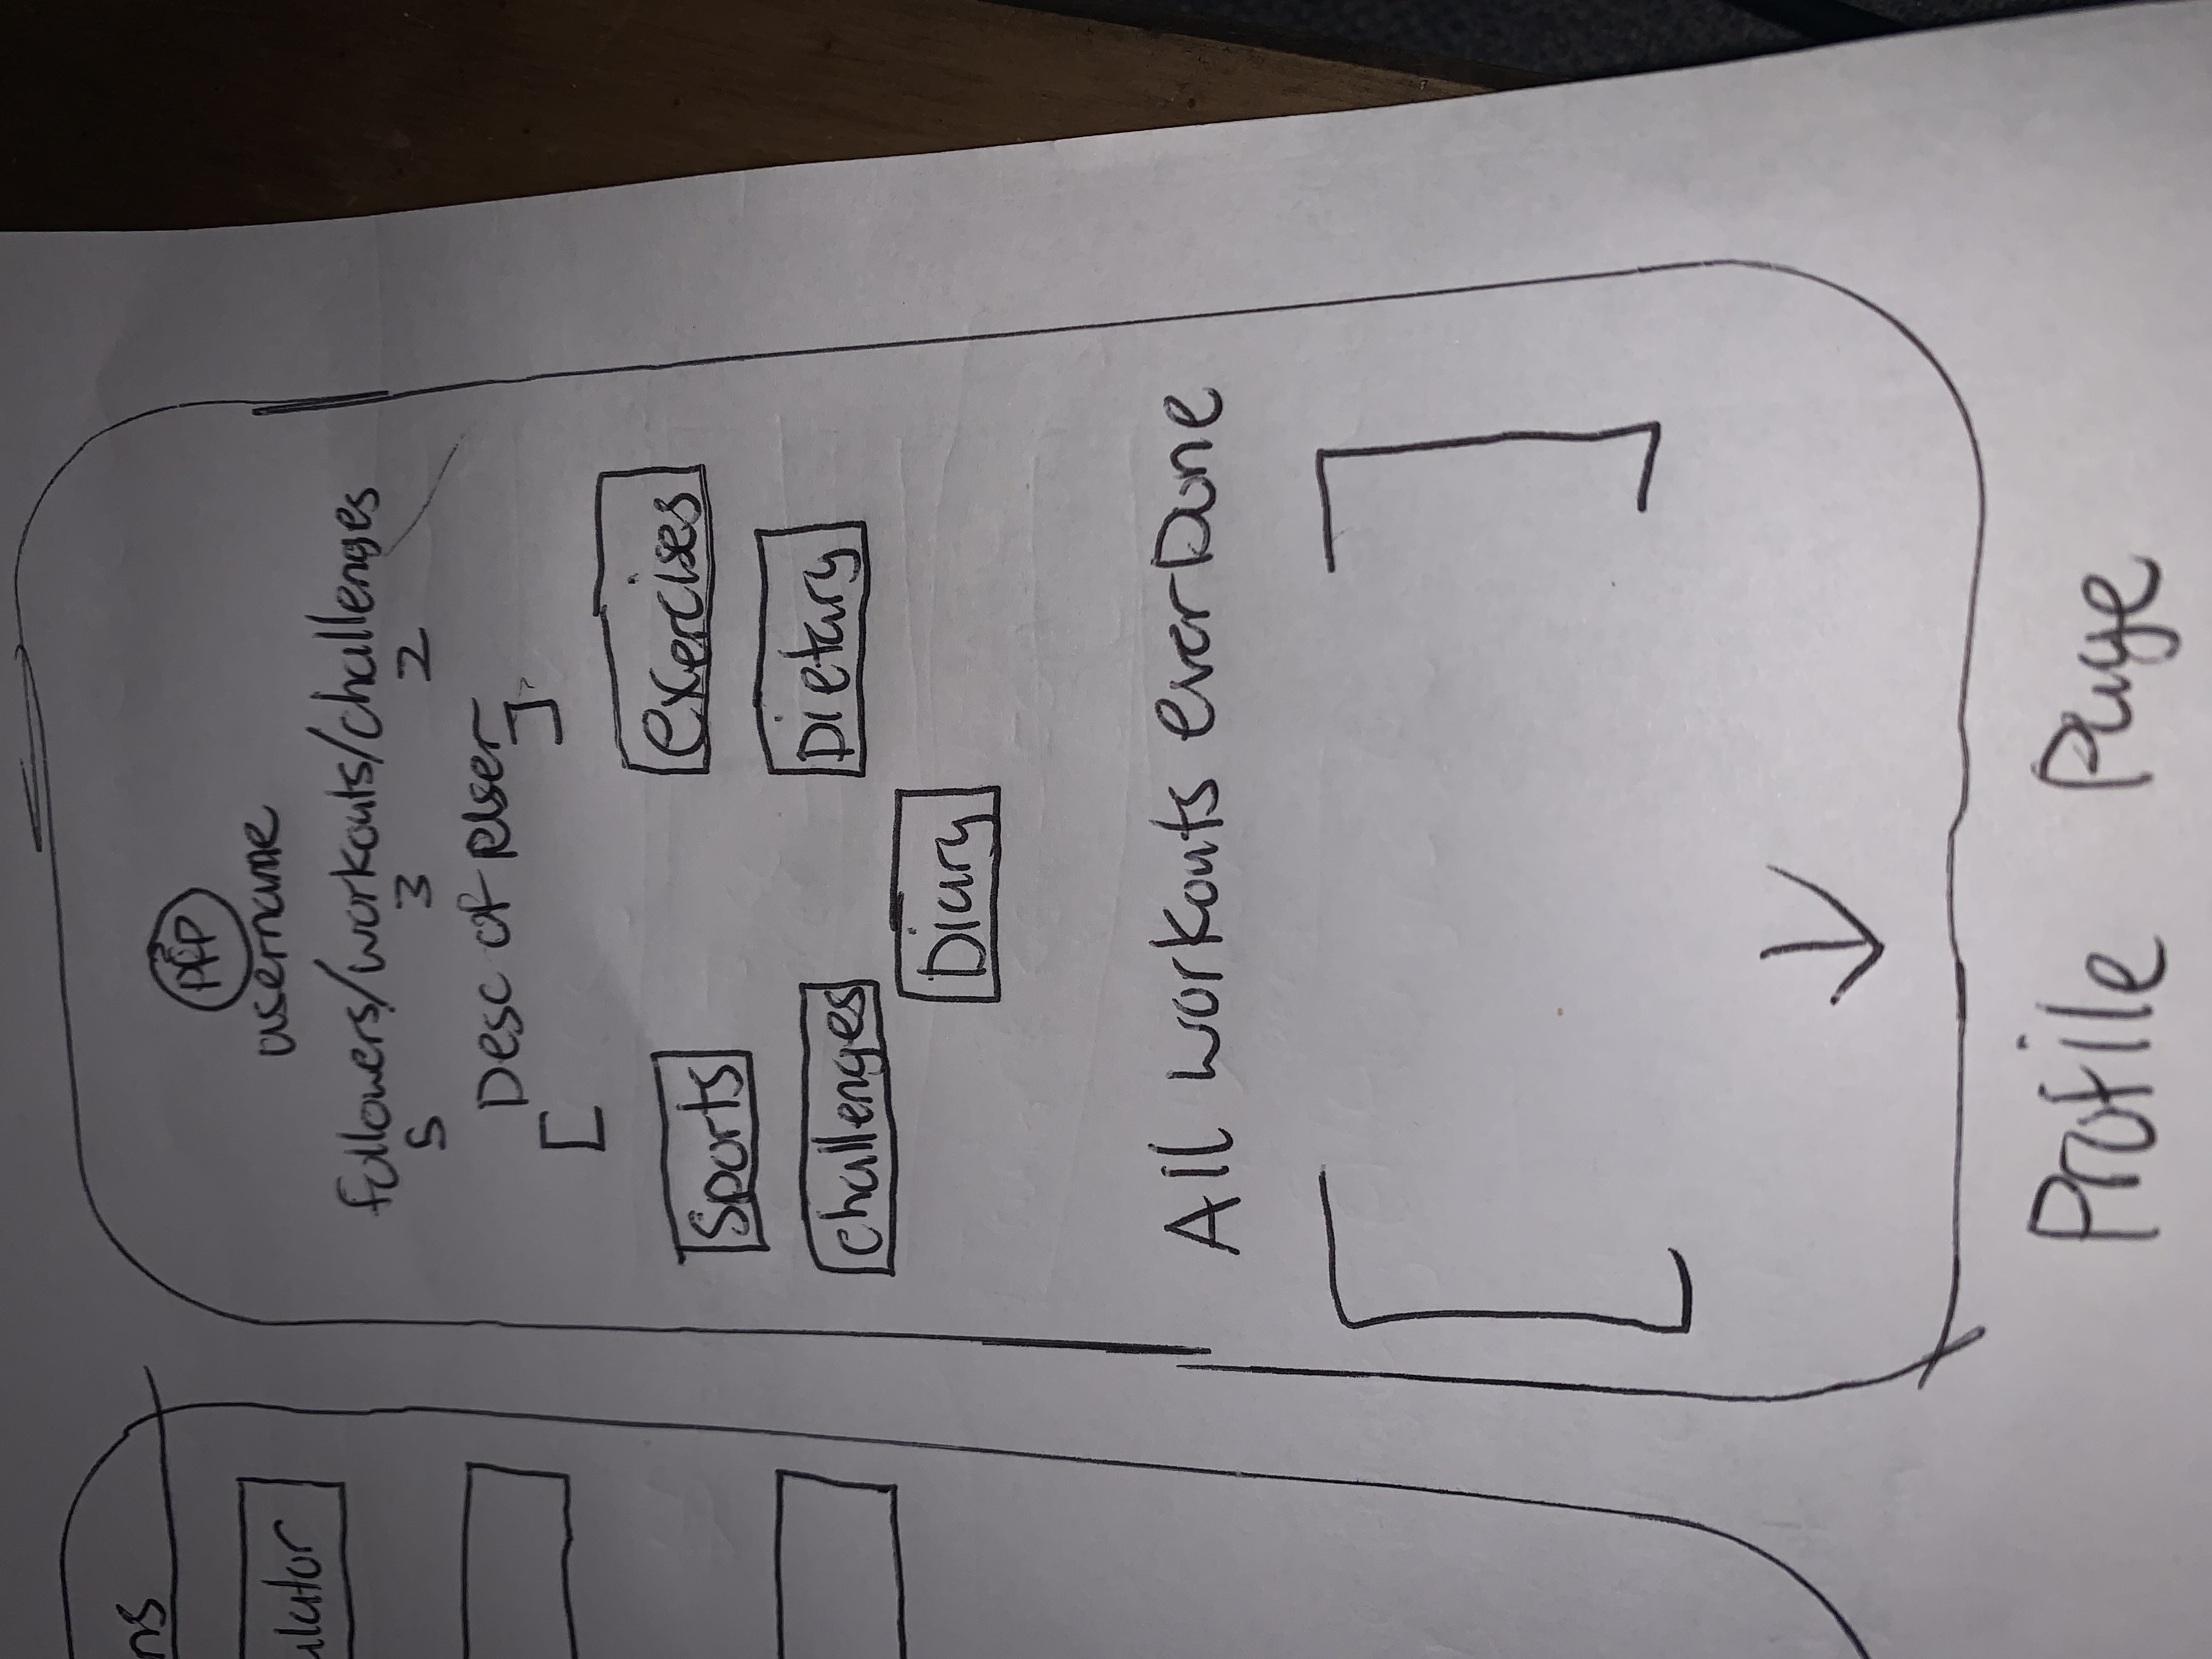 PFP
username
followers/workouts/challenges
5 3 2
Desc of user
Sports exercises
challenges Dietary
Diary
All workouts ever Done
Profile Page